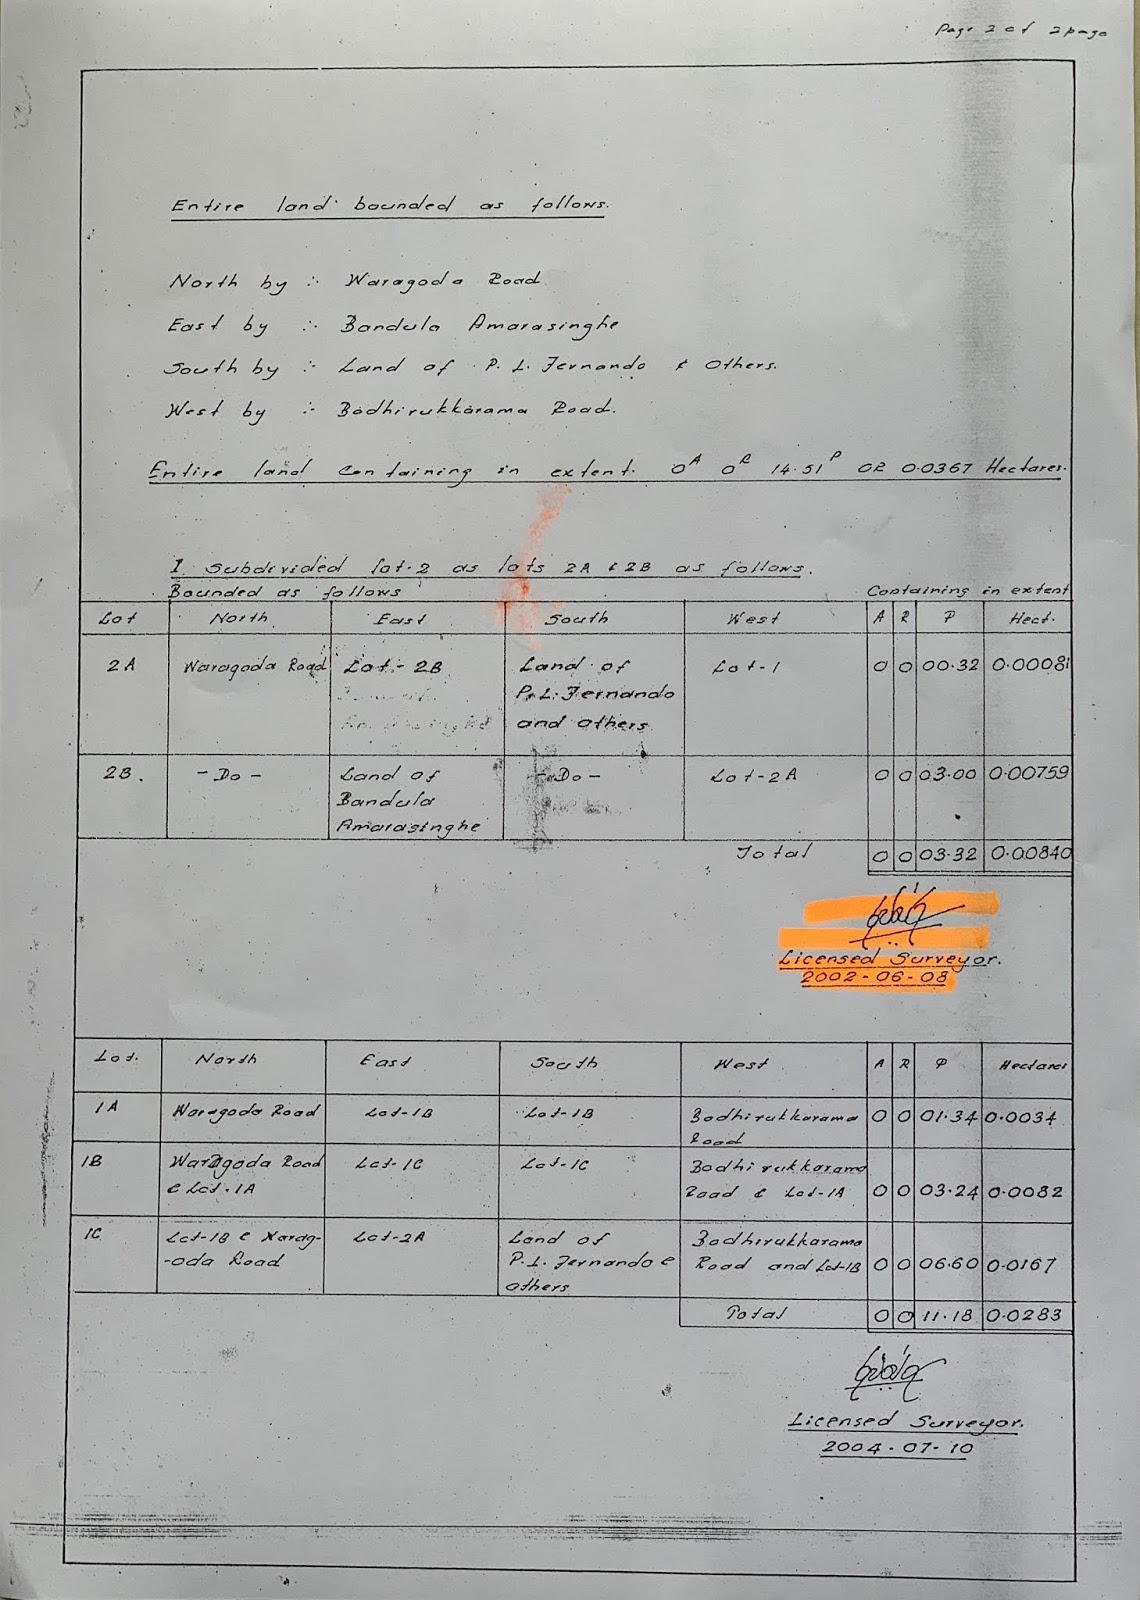 Page 2 of 2 page
Entire land bounded as follows.
North by :- Waragoda Road
East by :- Bandula Amarasinghe
South by :- Land of P. L. Fernando & Others.
West by :- Bodhirukkarama Road.
Entire land Containing in extent. 0ᴬ 0ᴿ 14.51ᴾ OR 0.0367 Hectares.
I Subdivided lot-2 as lots 2A & 2B as follows.
Bounded as follows Containing in extent
Lot North East South West A R P Hect.
2A Waragoda Road Lot-2B Land of Lot-1 0 0 00.32 0.00081
P. L. Fernando
and others
2B. - Do - Land of - Do - Lot-2A 0 0 03.00 0.00759
Bandula
Amarasinghe
Total 0 0 03.32 0.00840
Licensed Surveyor.
2002-06-08
Lot. North East South West A R P Hectares
1A Waragoda Road Lot-1B Lot-1B Bodhirukkarama 0 0 01.34 0.0034
Road
1B Waragoda Road Lot-1C Lot-1C Bodhirukkarama
& Lot-1A Road & Lot-1A 0 0 03.24 0.0082
1C Lot-1B & Warag- Lot-2A Land of Bodhirukkarama
-oda Road P. L. Fernando & Road and Lot-1B 0 0 06.60 0.0167
others
Total 0 0 11.18 0.0283
Licensed Surveyor.
2004-07-10